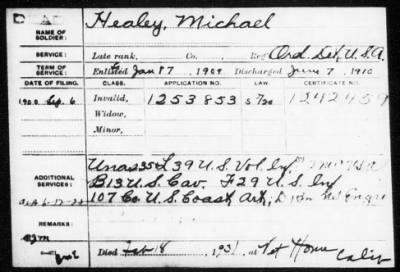 Healey, Michael
NAME OF SOLDIER:
SERVICE: Late rank, Co. Reg't Ord. Det. U.S.A.
TERM OF SERVICE: Enlisted Jan 17 1909 Discharged June 7 1910
DATE OF FILING. CLASS. APPLICATION NO. LAW. CERTIFICATE NO.
1900 Sep. 6 Invalid, 1253853 1242459
Widow,
Minor,
ADDITIONAL SERVICES:
Unas 35 L 39 U.S. Vol. Inf
B 13 U.S. Cav. F 29 U.S. Inf
107 Co U.S. Coast Art,
Died Feb 18, 1931, at Vet Home
Calif